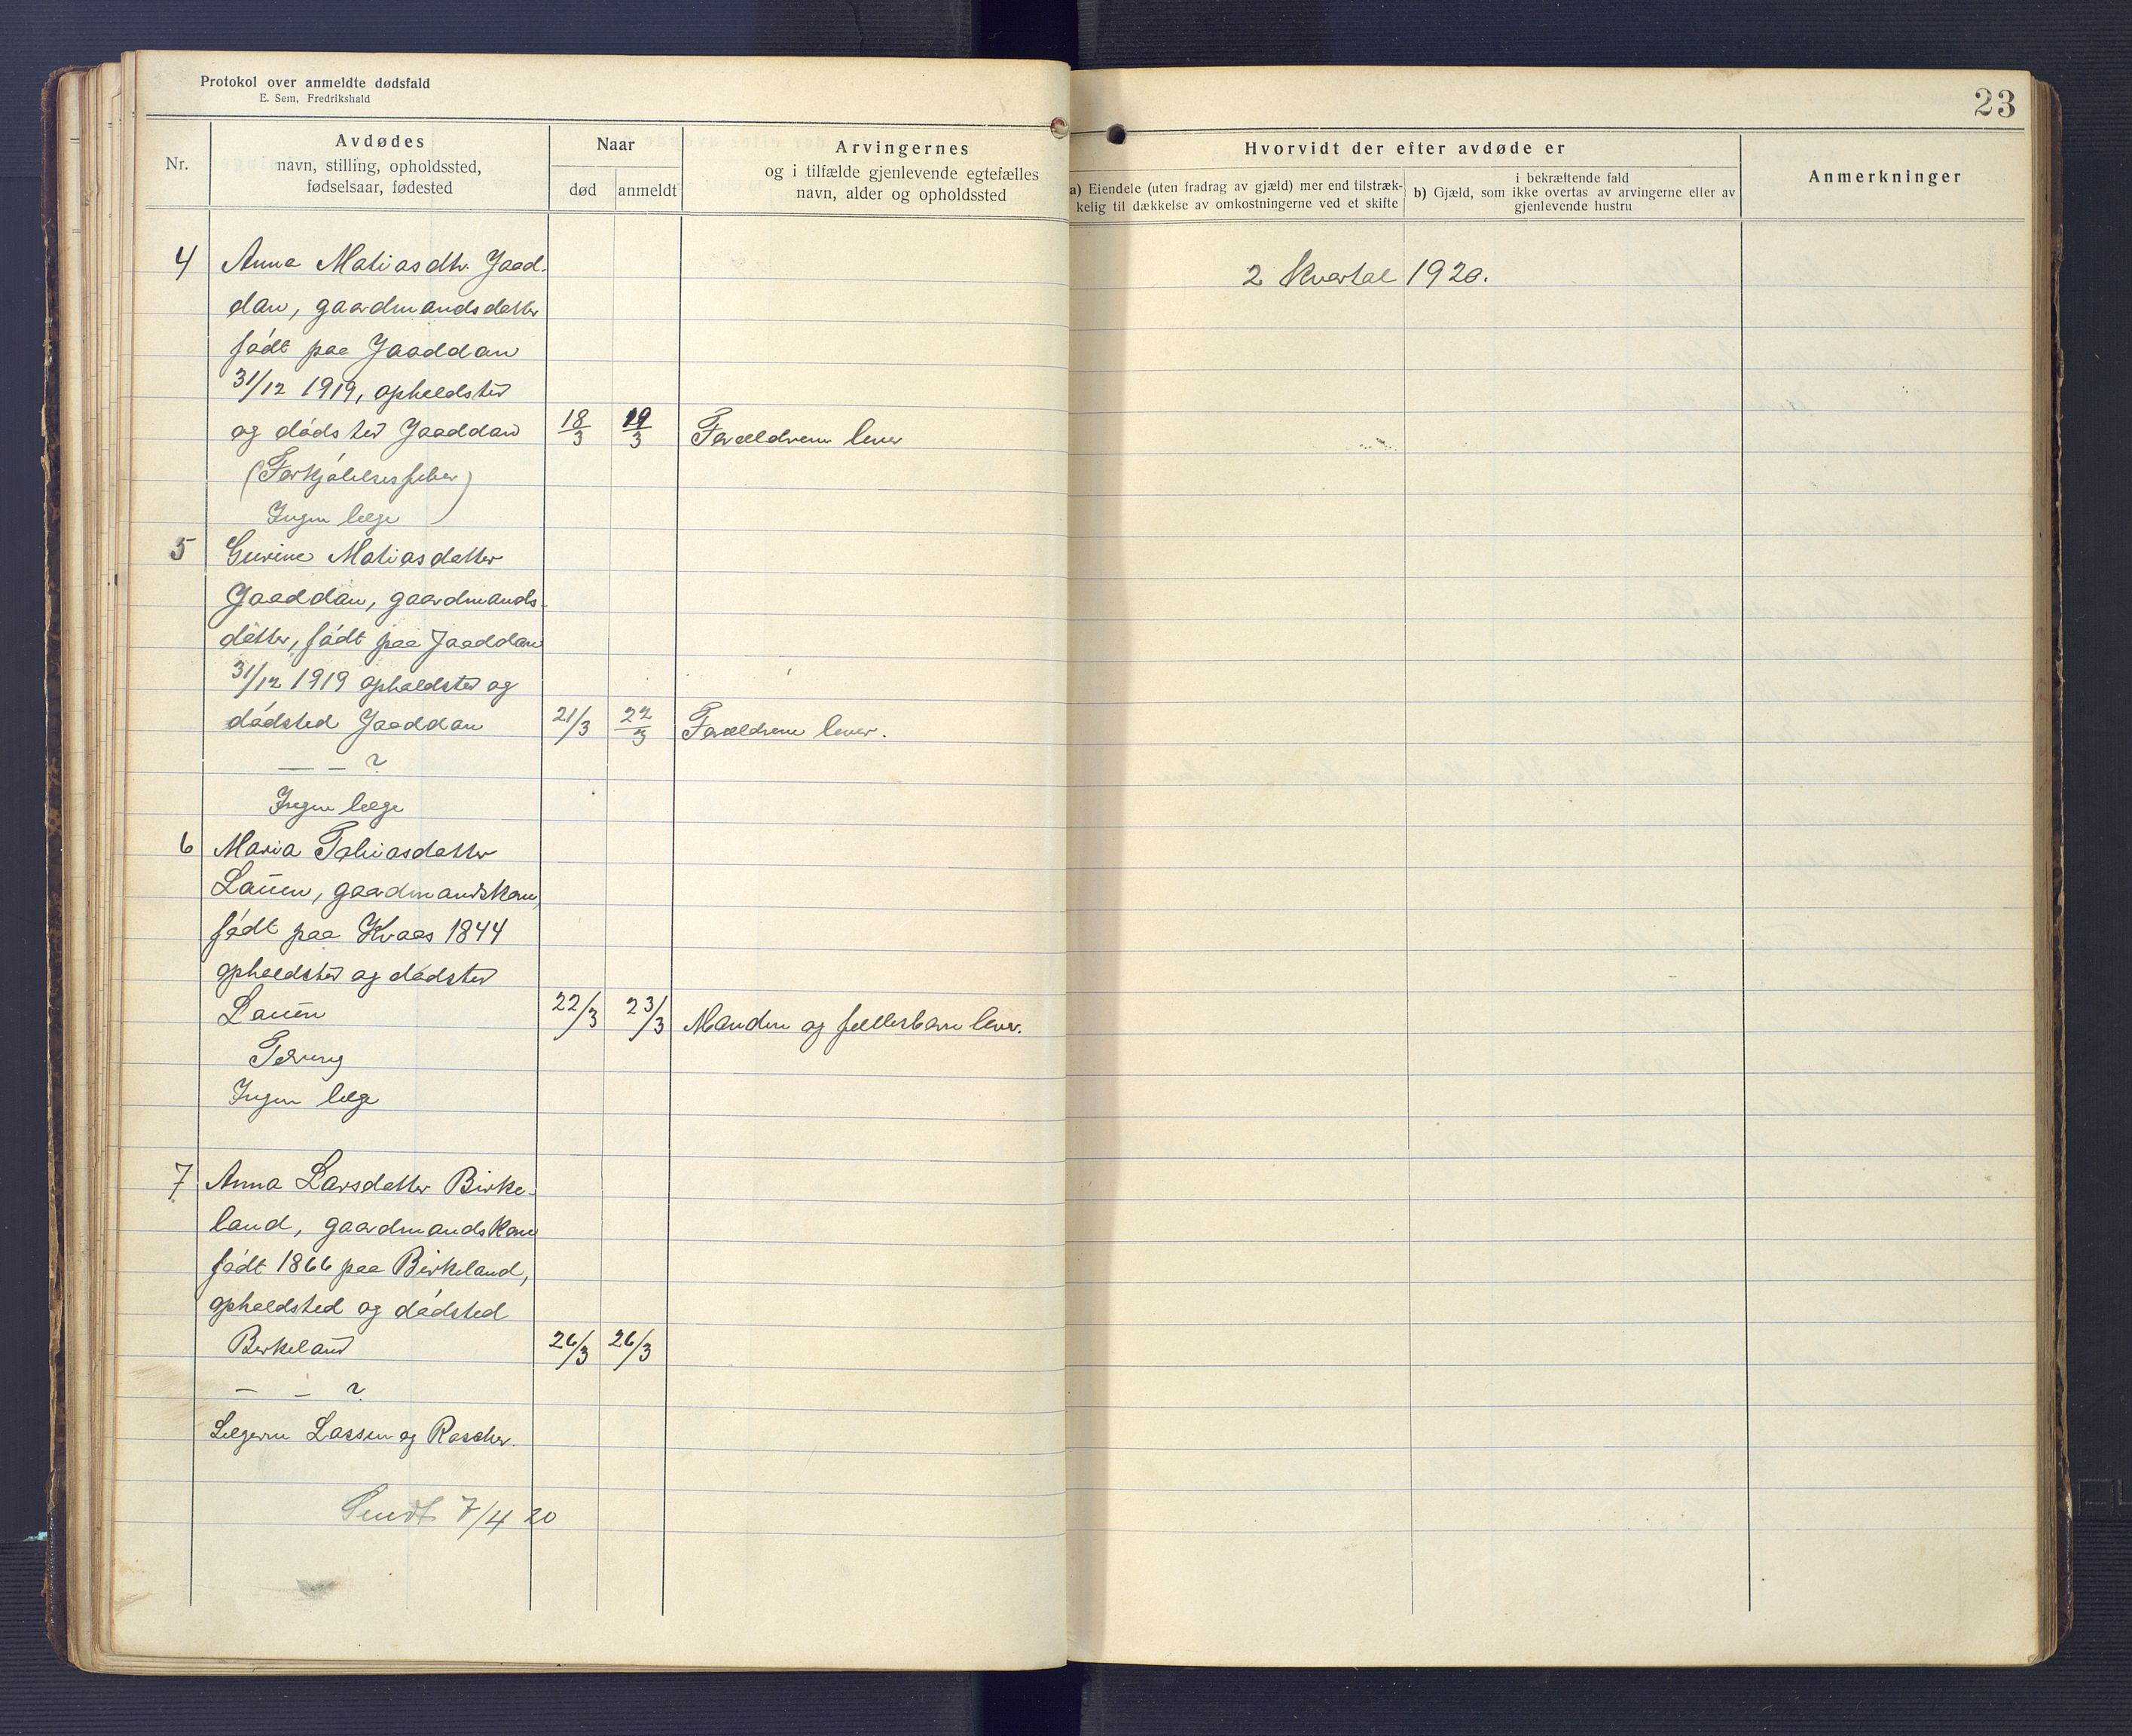 Protokol over anmeldte dødsfald
E. Sem, Fredrikshald
23
Nr.
Avdødes
navn, stilling, opholdssted,
fødselsaar, fødested
Naar
død
anmeldt
Arvingernes
og i tilfælde gjenlevende egtefælles
navn, alder og opholdssted
Hvorvidt der efter avdøde er
a) Eiendele (uten fradrag av gjæld) mer end tilstræk-
kelig til dækkelse av omkostningerne ved et skifte
i bekræftende fald
b) Gjæld, som ikke overtas av arvingerne eller av
gjenlevende hustru
Anmerkninger
2 Kvartal 1920.
4 Anna Matiasdtr. Jaad-
dan, gaardmandsdatter
født paa Jaaddan
31/12 1919, opholdsted
og dødsted Jaaddan 18/3 19/3 Forældrene lever
(Forkjølelsesfeber)
Ingen læge
5 Gurine Matiasdatter
Jaaddan, gaardmands-
datter, født paa Jaaddan
31/12 1919 opholdsted og
dødsted Jaaddan 21/3 22/3 Forældrene lever.
— – ?
Ingen læge
6 Maria Tobiasdatter
Lauen, gaardmandskone,
født paa Kvaas 1844
opholdsted og dødsted
Lauen 22/3 23/3 Manden og fellesbarn lever.
Tæring
Ingen læge
7 Anna Larsdatter Birke-
land, gaardmandskone
født 1866 paa Birkeland,
opholdsted og dødsted
Birkeland 26/3 26/3
– – ?
Lægerne Lassen og Roscher.
Sendt 7/4 20